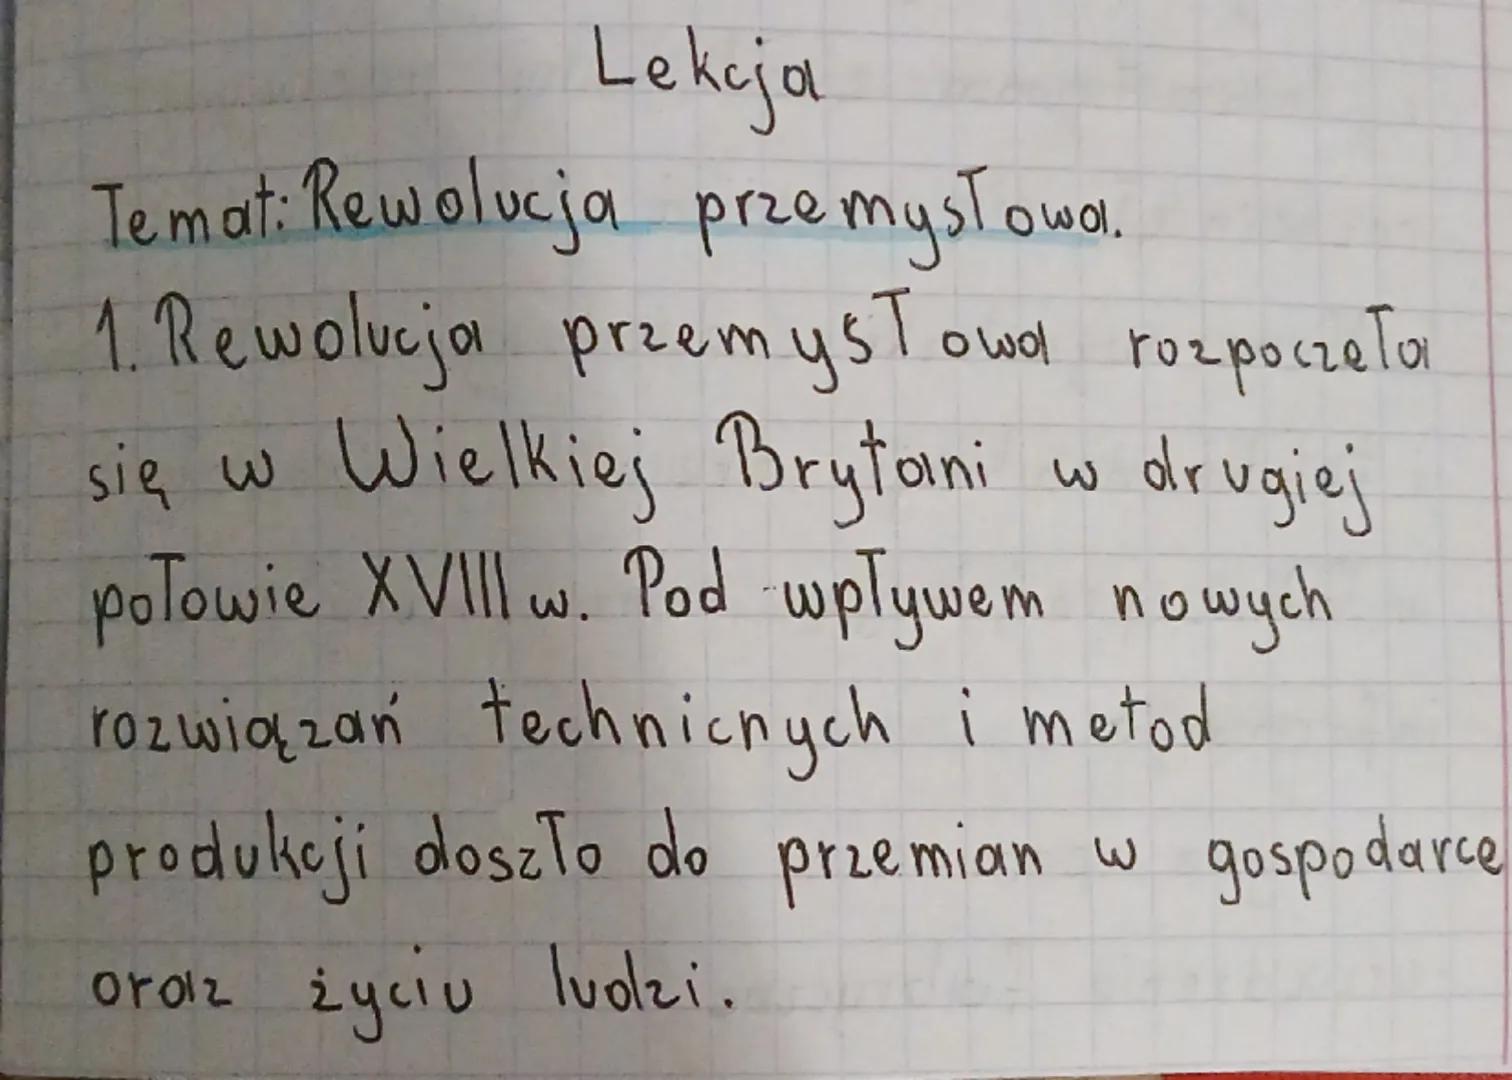 Lekcja
Temat: Rewolucja przemysłowa.
1. Rewolucja przemysłowa rozpoczeła
się w Wielkiej Brytani w drugiej
połowie XVIII w. Pod wpływem nowych
rozwiązań technicnych i metod
produkcji doszło do przemian w gospodarce
oraz życiu ludzi.